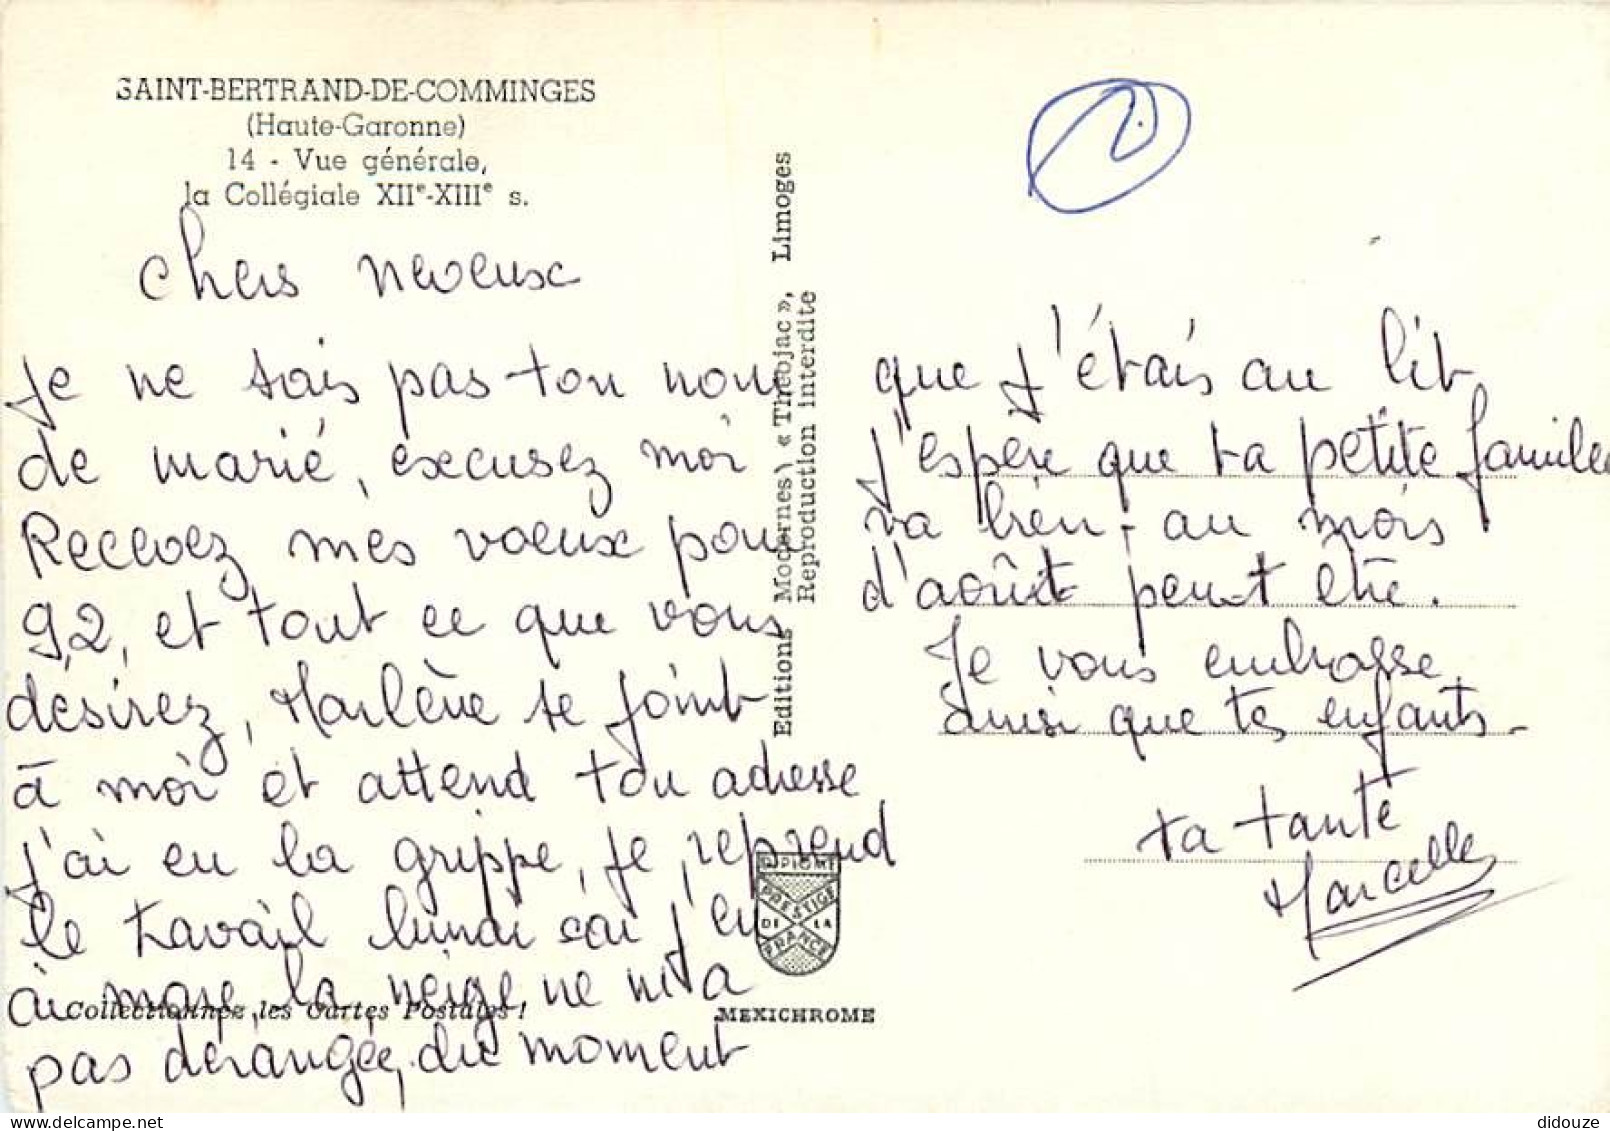 SAINT-BERTRAND-DE-COMMINGES
(Haute-Garonne)
14 - Vue générale,
la Collégiale XIIe-XIIIe s.
Chers neveux
Je ne sais pas ton nom
de marié, excusez moi
Recevez mes voeux pour
92, et tout ce que vous
désirez, Marlène se joint
à moi et attend ton adresse
j'ai eu la grippe, je reprend
le travail lundi car j'en
ai mare, la neige ne m'a
pas dérangée, du moment
Collectionnez les Cartes Postales !
Editions Modernes « Théojac », Limoges
Reproduction interdite
DIPLOME
PRESTIGE
DE LA
FRANCE
MEXICHROME
que j'étais au lit
j'espère que ta petite famille
va bien - au mois
d'août peut être.
Je vous embrasse
ainsi que tes enfants -
ta tante
Marcelle
didouze